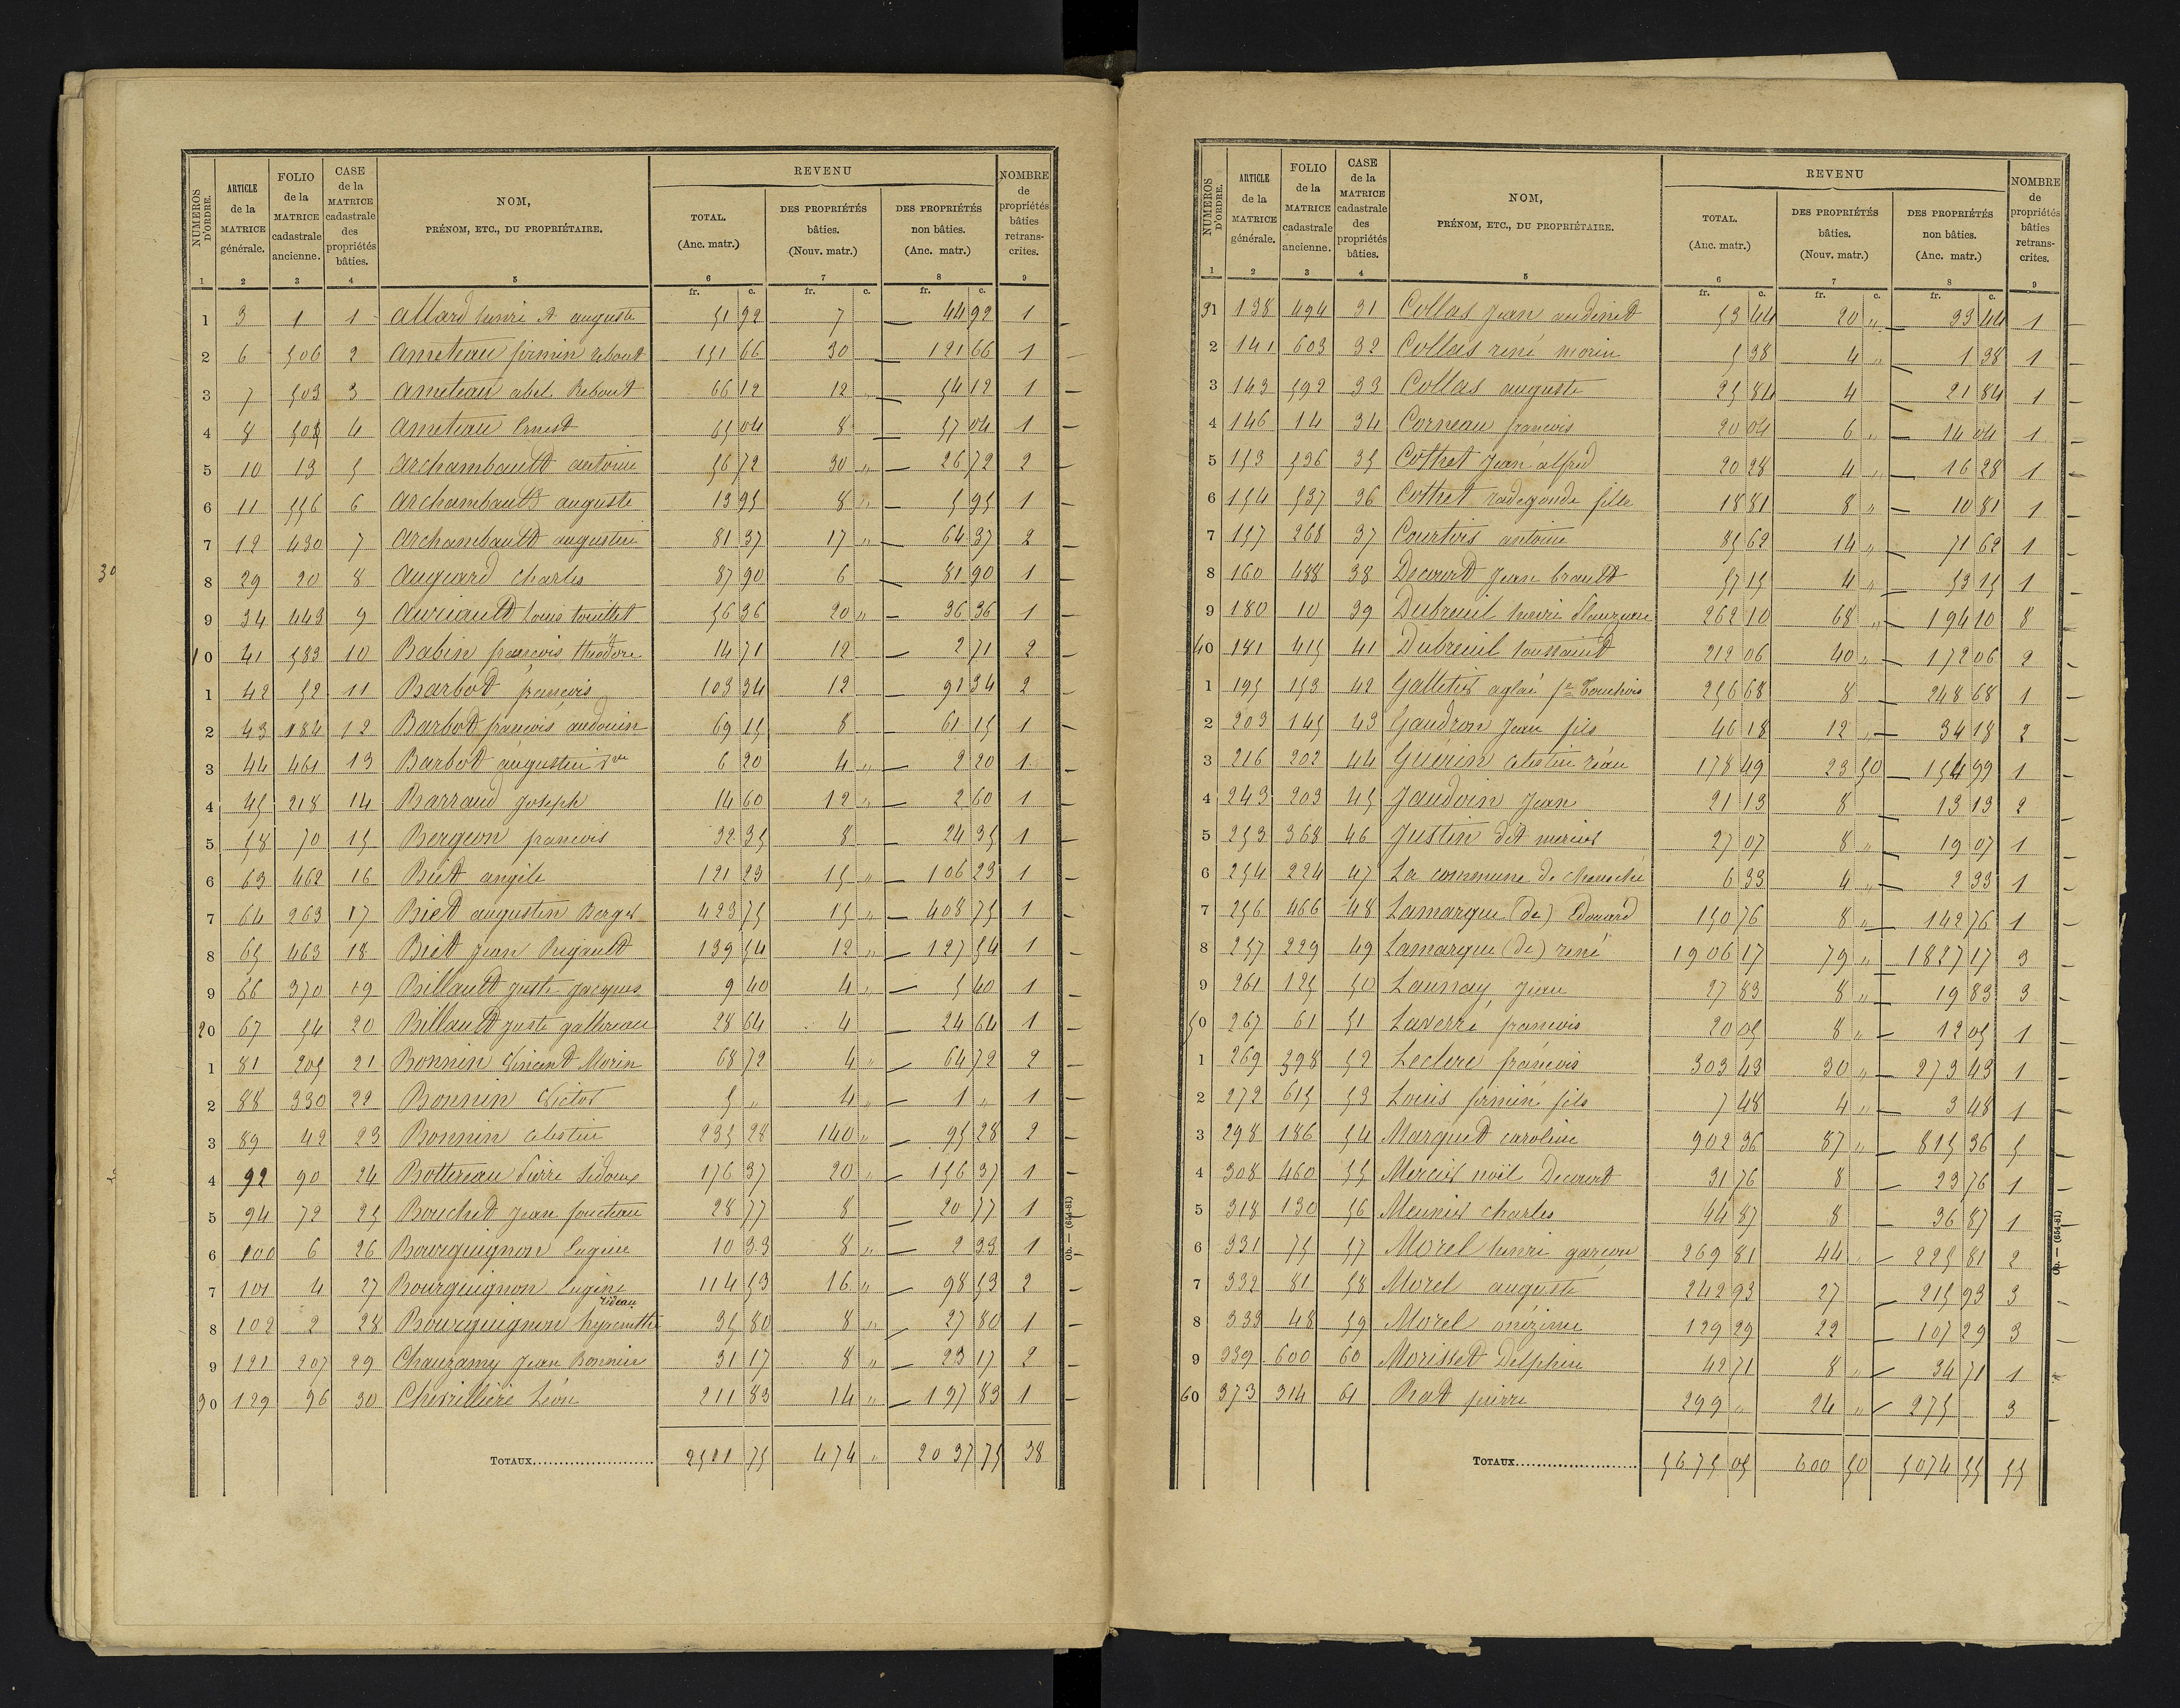 NUMÉROS D'ORDRE. | ARTICLE de la MATRICE générale. | FOLIO de la MATRICE cadastrale ancienne. | CASE de la MATRICE cadastrale des propriétés bâties. | NOM, PRÉNOM, ETC., DU PROPRIÉTAIRE. | REVENU | NOMBRE de propriétés bâties retranscrites.
TOTAL. (Anc. matr.) | DES PROPRIÉTÉS bâties. (Nouv. matr.) | DES PROPRIÉTÉS non bâties. (Anc. matr.)
1 2 3 4 5 6 7 8 9
fr. c. fr. c. fr. c.
1 3 1 1 Allard henri A auguste 51 92 7 — 44 92 1 —
2 6 506 2 Ameteau firmin Rebout 151 66 30 — 121 66 1 —
3 7 503 3 Ameteau abel Rebout 66 12 12 „ — 54 12 1 —
4 8 508 4 Ameteau Ernest 65 04 8 — 57 04 1 —
5 10 13 5 Archambault antoine 56 72 30 „ — 26 72 2 —
6 11 556 6 Archambault auguste 13 95 8 „ — 5 95 1 —
7 12 430 7 Archambault augustin 81 37 17 „ — 64 37 2 —
8 29 20 8 Auguard Charles 87 90 6 — 81 90 1 —
9 34 443 9 Auriault Louis touillet 56 36 20 „ — 36 36 1 —
10 41 583 10 Babin françois théodore 14 71 12 — 2 71 2 —
1 42 52 11 Barbot françois 103 34 12 — 91 34 2 —
2 43 184 12 Barbot françois audouin 69 15 8 — 61 15 1 —
3 44 461 13 Barbot augustin Vve 6 20 4 „ — 2 20 1 —
4 45 218 14 Barraud Joseph 14 60 12 „ — 2 60 1 —
5 58 70 15 Bergeon francois 32 35 8 — 24 35 1 —
6 63 462 16 Biet angèle 121 23 15 „ — 106 23 1 —
7 64 263 17 Biet augustin Berger 423 75 15 „ — 408 75 1 —
8 65 463 18 Biet Jean Rigault 139 54 12 „ — 127 54 1 —
9 66 370 19 Billault juste Jacques 9 40 4 „ — 5 40 1 —
20 67 54 20 Billault juste gathereau 28 64 4 — 24 64 1 —
1 81 205 21 Bonnin Vincent Morin 68 72 4 „ — 64 72 2 —
2 88 330 22 Bonnin Victor 5 „ 4 „ — 1 „ 1 —
3 89 42 23 Bonnin Celestin 235 28 140 „ — 95 28 2 —
4 92 90 24 Bottereau Pierre Sidoux 176 37 20 „ — 156 37 1 —
5 94 72 25 Bouchet Jean foucteau 28 77 8 — 20 77 1 —
6 100 6 26 Bourguignon Eugène 10 33 8 „ — 2 33 1 —
7 101 4 27 Bourguignon Eugène 114 53 16 „ — 98 53 2 —
rideau
8 102 2 28 Bourguignon hyacinthe 35 80 8 „ — 27 80 1 —
9 121 207 29 Chauzamy Jean Bonnin 31 17 8 „ — 23 17 2 —
30 129 96 30 Chevrillière Léon 211 83 14 „ — 197 83 1 —
TOTAUX........ 2511 75 474 „ 2037 75 38
Ob. — (654-81)
30
NUMÉROS D'ORDRE. | ARTICLE de la MATRICE générale. | FOLIO de la MATRICE cadastrale ancienne. | CASE de la MATRICE cadastrale des propriétés bâties. | NOM, PRÉNOM, ETC., DU PROPRIÉTAIRE. | REVENU | NOMBRE de propriétés bâties retranscrites.
TOTAL. (Anc. matr.) | DES PROPRIÉTÉS bâties. (Nouv. matr.) | DES PROPRIÉTÉS non bâties. (Anc. matr.)
1 2 3 4 5 6 7 8 9
fr. c. fr. c. fr. c.
31 138 494 31 Collas Jean audinet 53 44 20 „ — 33 44 1 —
2 141 603 32 Collas rené morin 5 38 4 „ — 1 38 1 —
3 143 592 33 Collas auguste 25 84 4 — 21 84 1 —
4 146 14 34 Corneau françois 20 04 6 „ — 14 04 1 —
5 153 536 35 Cothet Jean alfred 20 28 4 „ — 16 28 1 —
6 154 537 36 Cothet radegonde fille 18 81 8 „ — 10 81 1 —
7 157 268 37 Courtois antoine 85 62 14 „ — 71 62 1 —
8 160 488 38 Decourt Jean brault 57 15 4 „ — 53 15 1 —
9 180 10 39 Dubreuil henri 262 10 68 „ — 194 10 8 —
40 181 415 41 Dubreuil toussaint 212 06 40 „ — 172 06 2 —
1 195 153 42 Galletier aglaé fe Touchois 256 68 8 — 248 68 1 —
2 203 145 43 Gaudron Jean fils 46 18 12 „ — 34 18 2 —
3 216 202 44 Guérin Celestin réau 178 49 23 50 — 154 99 1 —
4 243 203 45 Jaudoin Jean 21 13 8 — 13 13 2 —
5 253 368 46 Justin dit mercier 27 07 8 „ — 19 07 1 —
6 254 224 47 La commune de Chouché 6 33 4 „ — 2 33 1 —
7 256 466 48 Lamarque (de) Edouard 150 76 8 „ — 142 76 1 —
8 257 229 49 Lamarque (de) rené 1906 17 79 „ — 1827 17 3 —
9 261 125 50 Launay Jean 27 83 8 „ — 19 83 3 —
50 267 61 51 Laverré françois 20 05 8 „ — 12 05 1 —
1 269 398 52 Leclerc françois 303 43 30 „ — 273 43 1 —
2 272 615 53 Louis firmin fils 7 48 4 „ — 3 48 1 —
3 298 186 54 Marquet caroline 902 36 87 „ — 815 36 5 —
4 308 460 55 Mercier noël Decourt 31 76 8 — 23 76 1 —
5 318 130 56 Meunier charles 44 87 8 — 36 87 1 —
6 331 75 57 Morel henri garçon 269 81 44 — 225 81 2 —
7 332 81 58 Morel auguste 242 93 27 — 215 93 3 —
8 333 48 59 Morel onézime 129 29 22 — 107 29 3 —
9 339 600 60 Morisset Delphin 42 71 8 „ — 34 71 1
60 373 314 61 Rat pierre 299 „ 24 „ — 275 3 —
TOTAUX........ 5675 05 600 50 5074 55 55
Ob. — (654-81)